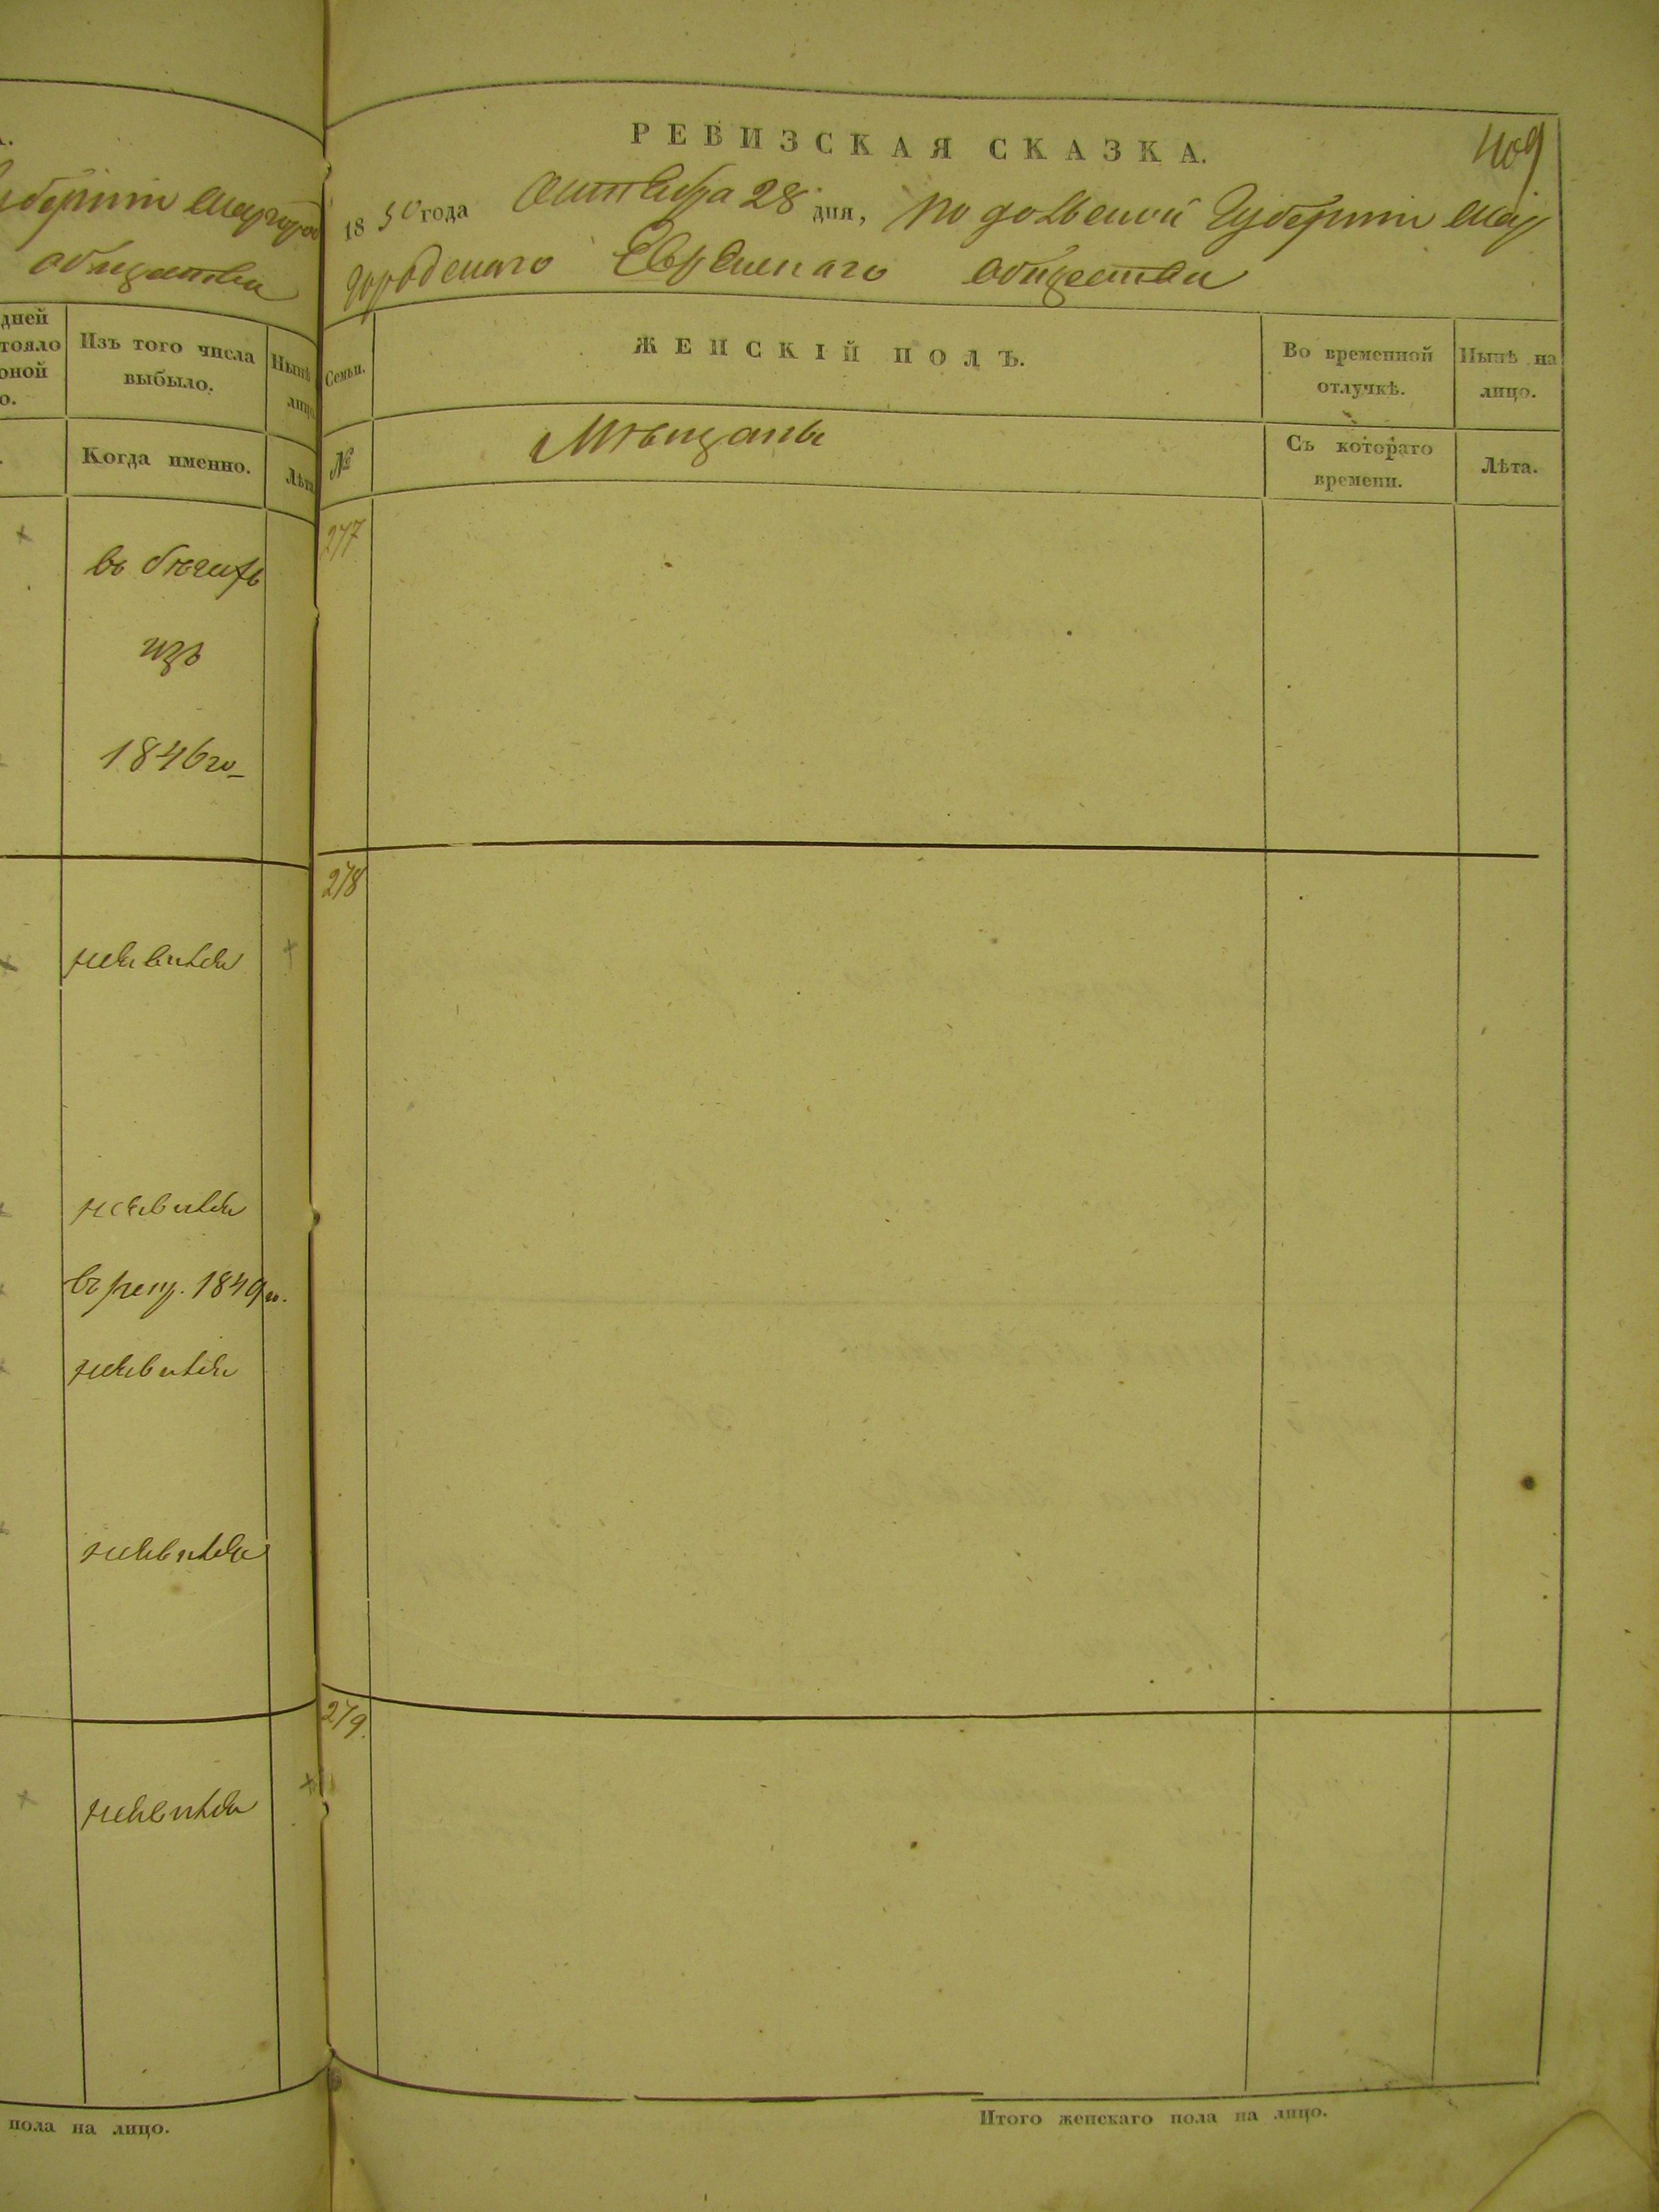 губернии Шаргород
общества
дней
тояло
оной
о.
Изъ того числа
выбыло.
Нынѣ
лицо
Когда именно.
Лѣта
въ бѣгахъ
изъ
1846го
неявился
неявился
въ рекр. 1849го.
неявился
неявился
неявился
пола на лицо.
РЕВИЗСКАЯ СКАЗКА.
409
1850 года Октября 28 дня, Подольской Губернии Шар
городскаго Еврейскаго общества
Семьи.
ЖЕНСКІЙ ПОЛЪ.
Во временной
отлучкѣ.
Нынѣ на
лицо.
№
Мѣщане
Съ котораго
времени.
Лѣта.
277
278
279.
Итого женскаго пола на лицо.